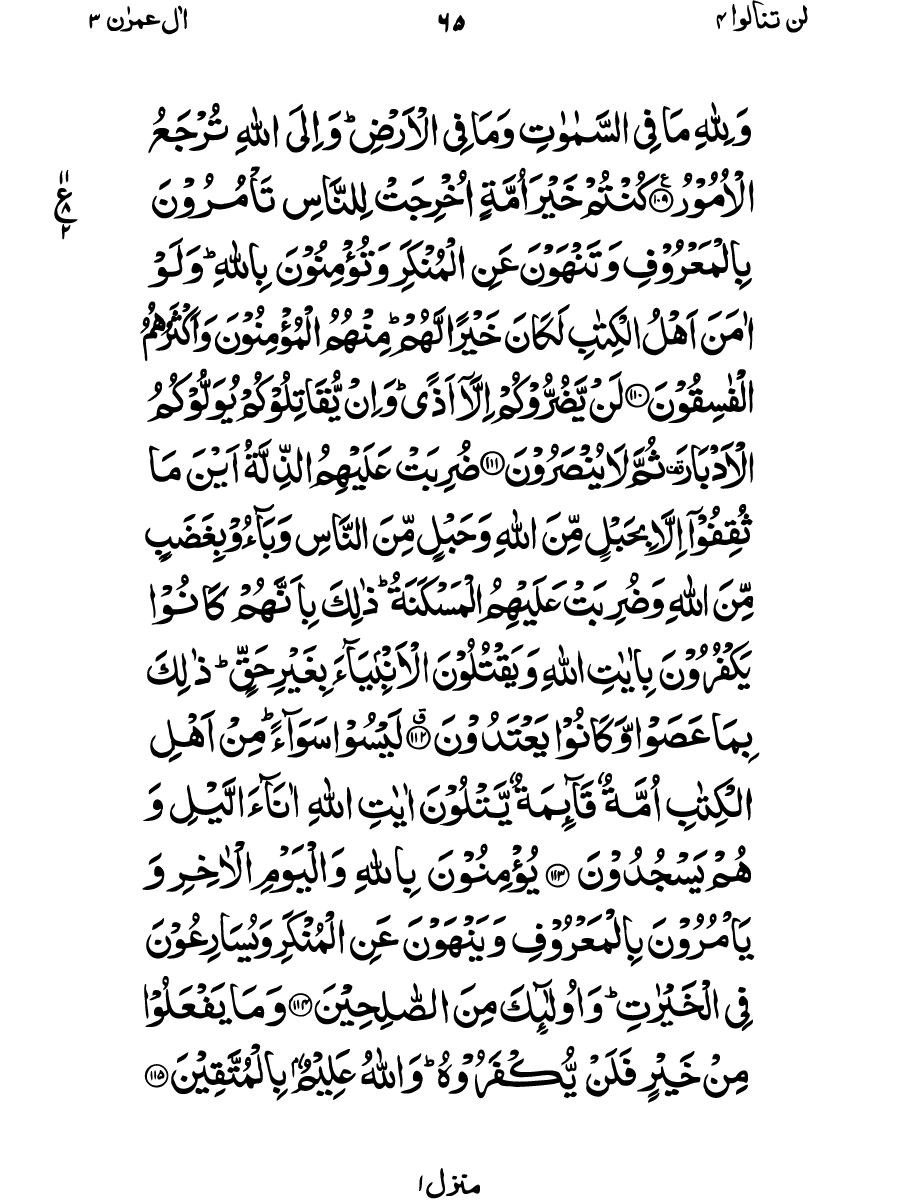 لن تنالوا ۴ ۶۵ اٰل عمرٰن ۳
وَلِلّٰهِ مَا فِی السَّمٰوٰتِ وَمَا فِی الْاَرْضِ ؕ وَاِلَی اللّٰهِ تُرْجَعُ
الْاُمُوْرُ ﴿۱۰۹﴾ ع كُنْتُمْ خَیْرَ اُمَّةٍ اُخْرِجَتْ لِلنَّاسِ تَاْمُرُوْنَ
۱۱ ع ۸ ۲
بِالْمَعْرُوْفِ وَتَنْهَوْنَ عَنِ الْمُنْكَرِ وَتُؤْمِنُوْنَ بِاللّٰهِ ؕ وَلَوْ
اٰمَنَ اَهْلُ الْكِتٰبِ لَكَانَ خَیْرًا لَّهُمْ ؕ مِنْهُمُ الْمُؤْمِنُوْنَ وَاَكْثَرُهُمُ
الْفٰسِقُوْنَ ﴿۱۱۰﴾ لَنْ یَّضُرُّوْكُمْ اِلَّاۤ اَذًی ؕ وَاِنْ یُّقَاتِلُوْكُمْ یُوَلُّوْكُمُ
الْاَدْبَارَ ۫ ثُمَّ لَا یُنْصَرُوْنَ ﴿۱۱۱﴾ ضُرِبَتْ عَلَیْهِمُ الذِّلَّةُ اَیْنَ مَا
ثُقِفُوْۤا اِلَّا بِحَبْلٍ مِّنَ اللّٰهِ وَحَبْلٍ مِّنَ النَّاسِ وَبَآءُوْ بِغَضَبٍ
مِّنَ اللّٰهِ وَضُرِبَتْ عَلَیْهِمُ الْمَسْكَنَةُ ؕ ذٰلِكَ بِاَنَّهُمْ كَانُوْا
یَكْفُرُوْنَ بِاٰیٰتِ اللّٰهِ وَیَقْتُلُوْنَ الْاَنْۢبِیَآءَ بِغَیْرِ حَقٍّ ؕ ذٰلِكَ
بِمَا عَصَوْا وَّكَانُوْا یَعْتَدُوْنَ ﴿۱۱۲﴾ ۗ لَیْسُوْا سَوَآءً ؕ مِنْ اَهْلِ
الْكِتٰبِ اُمَّةٌ قَآئِمَةٌ یَّتْلُوْنَ اٰیٰتِ اللّٰهِ اٰنَآءَ الَّیْلِ وَ
هُمْ یَسْجُدُوْنَ ﴿۱۱۳﴾ یُؤْمِنُوْنَ بِاللّٰهِ وَالْیَوْمِ الْاٰخِرِ وَ
یَاْمُرُوْنَ بِالْمَعْرُوْفِ وَیَنْهَوْنَ عَنِ الْمُنْكَرِ وَیُسَارِعُوْنَ
فِی الْخَیْرٰتِ ؕ وَاُولٰٓئِكَ مِنَ الصّٰلِحِیْنَ ﴿۱۱۴﴾ وَمَا یَفْعَلُوْا
مِنْ خَیْرٍ فَلَنْ یُّكْفَرُوْهُ ؕ وَاللّٰهُ عَلِیْمٌۢ بِالْمُتَّقِیْنَ ﴿۱۱۵﴾
منزل ۱